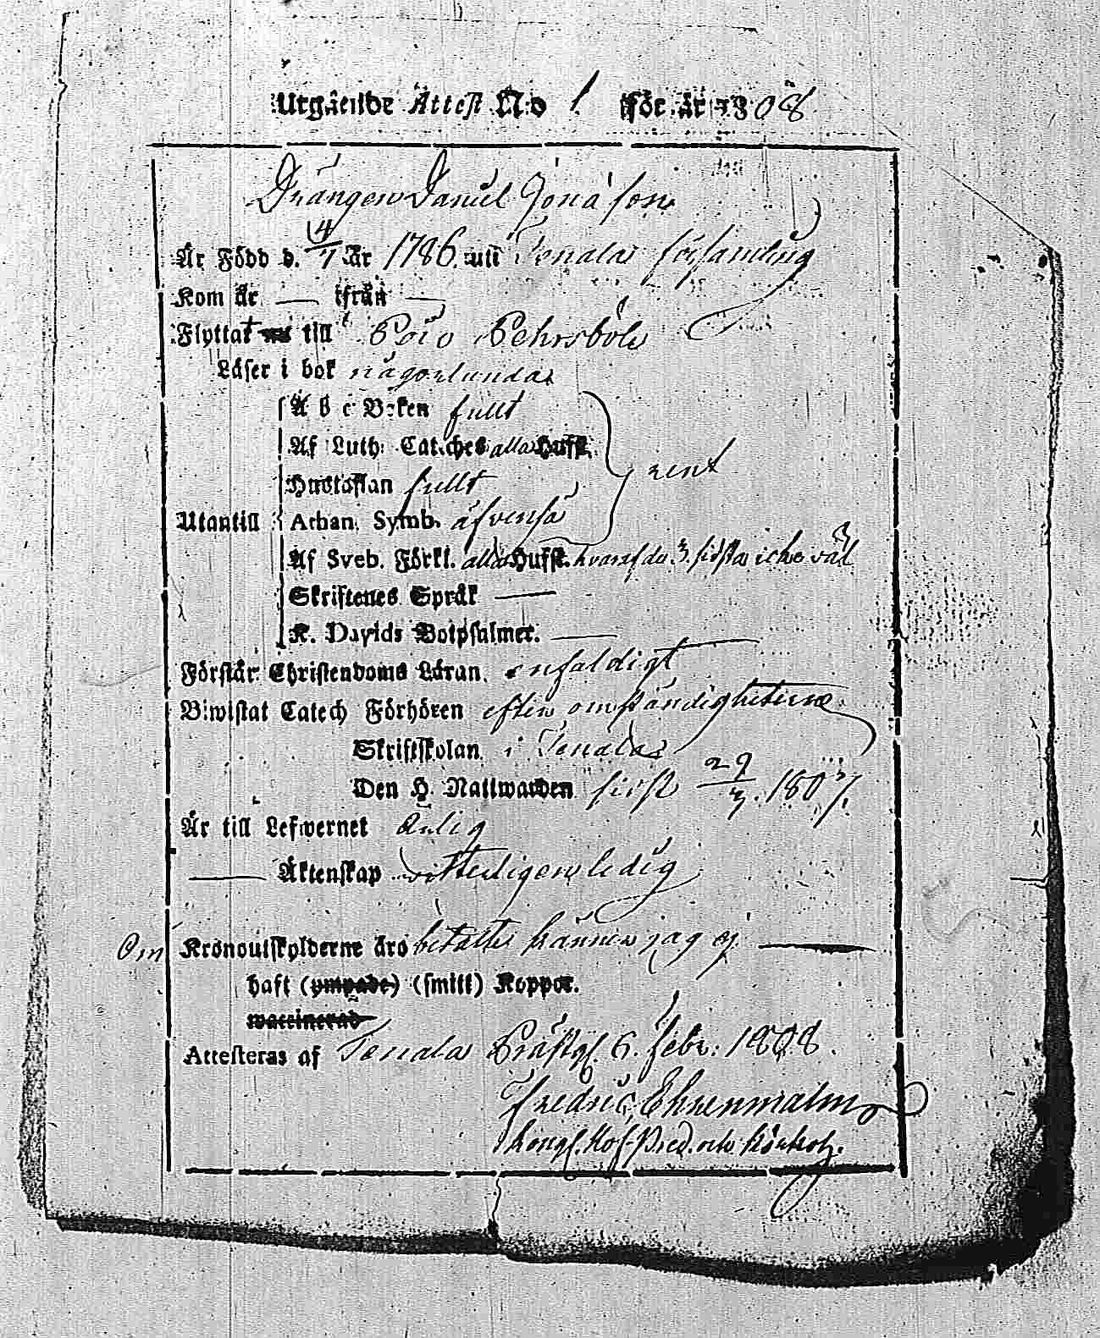 Utgående Attest No 1 för år 1808
Drängen Daniel Jonasson
Är Född d. 14/7 år 1786. uti Tenala församling
Kom år — ifrån —
Flyttat till Poio Pehrsböle
Läser i bok någorlunda
A b c Boken fullt
Af Luth. Catches alla Hufst.
rent
Hustaflan fullt
Utantill Athan. Symb. äfvenså
Af Sveb. Förkl. alla Hufst. hvaraf de 3. sidsta icke väl
Skriftenes Språk —
K. Davids Botpsalmer. —
Förstår Christendoms Läran. enfaldigt
Biwistat Catech Förhören efter omständigheterne
Skriftskolan i Tenala
Den H. Nattwarden sidst 29/3. 1807.
Är till Lefwernet ärlig
— Äktenskap vitterligen ledig
Om Kronoutskylderne äro betalte känner jag ej —
haft (ympade) (smitt) Koppor.
waccinerad
Attesteras af Tenala Prästg. 6. febr: 1808.
Fredric Ehrenmalm
Kongl. Hof Pred. och Kyrkoh.